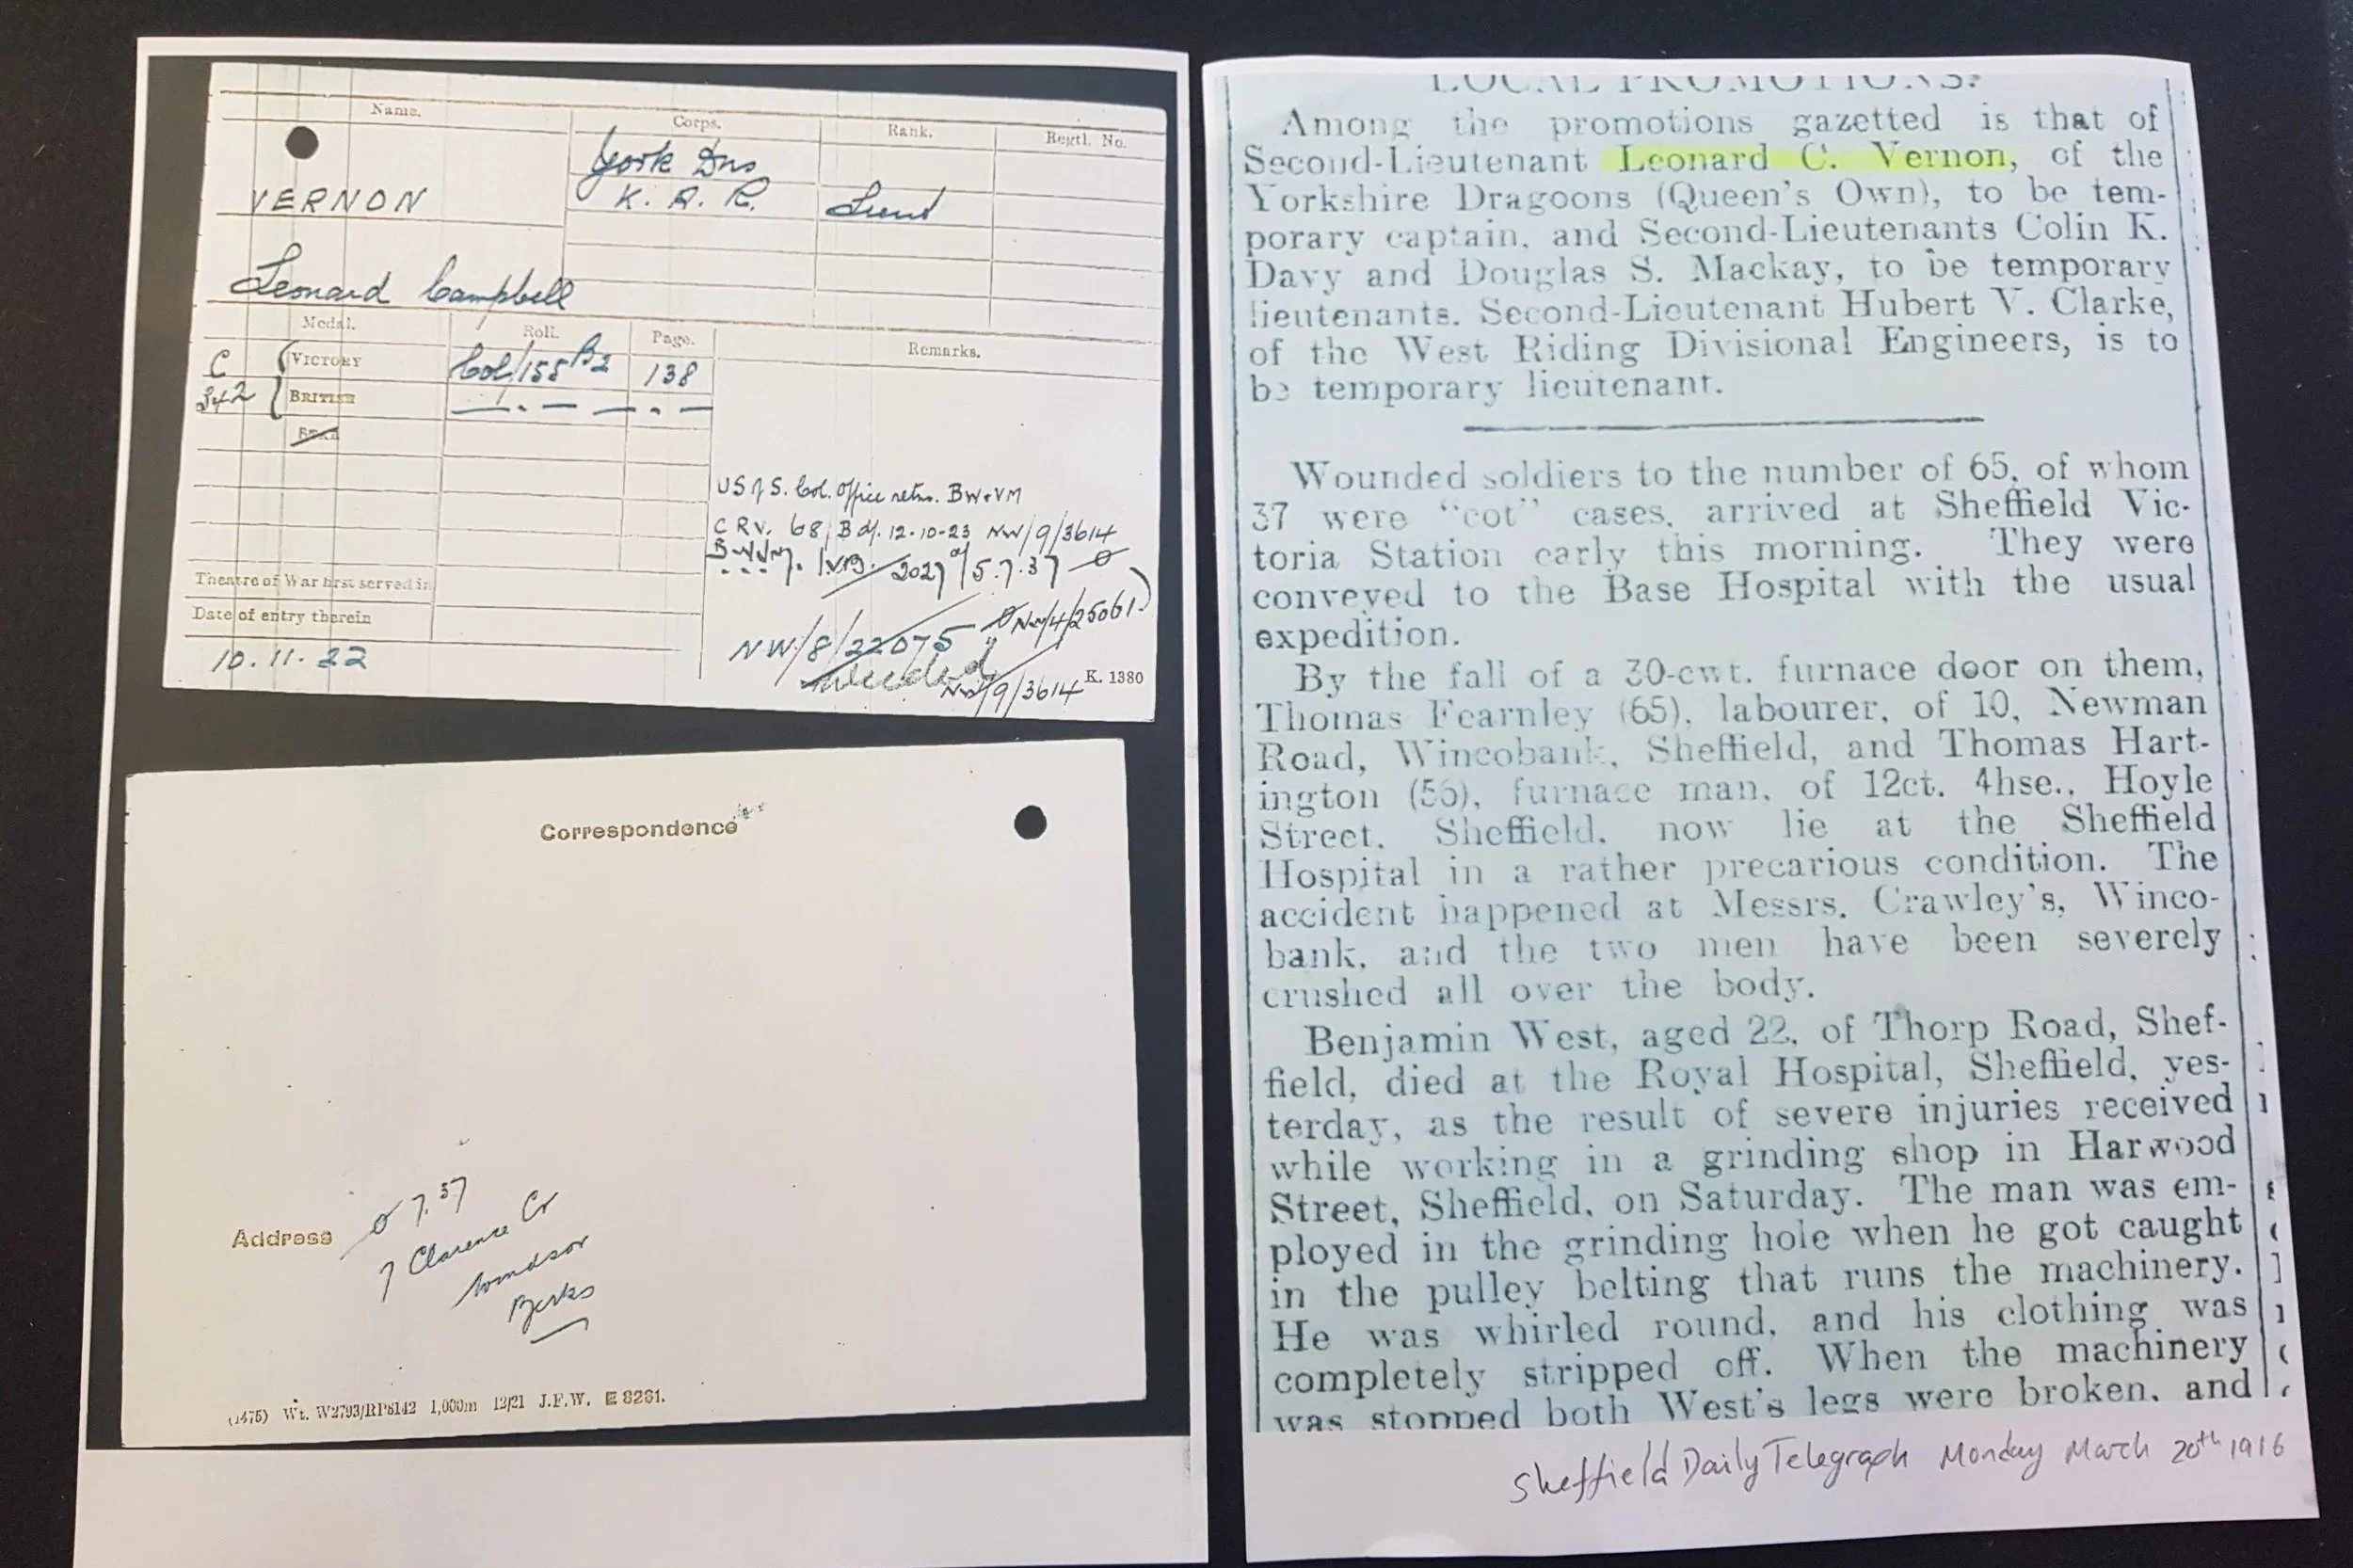 Name.
Corps.
Rank.
Regtl. No.
VERNON
York Dns
K. R. R.
Lieut
Leonard Campbell
Medal.
Roll.
Page.
Remarks.
C
342
VICTORY
Col/155 B2
138
BRITISH
STAR
US of S. Col. Office retns. BW & VM
C RV. 68/B d/. 12-10-23 NW/9/3614
B.W.V.M. IVB. 2027 d/ 5.7.37
NW/4/25061
NW/8/22075
NW/9/3614
K. 1380
Theatre of War first served in
Date of entry therein
10.11.22
Correspondence
Address
7.37
7 Clarence Cr
Windsor
Berks
(1475) Wt. W2793/RP8142 1,000m 12/21 J.F.W. E 8281.
LOCAL PROMOTIONS.
Among the promotions gazetted is that of
Second-Lieutenant Leonard C. Vernon, of the
Yorkshire Dragoons (Queen's Own), to be tem-
porary captain, and Second-Lieutenants Colin K.
Davy and Douglas S. Mackay, to be temporary
lieutenants. Second-Lieutenant Hubert V. Clarke,
of the West Riding Divisional Engineers, is to
be temporary lieutenant.
Wounded soldiers to the number of 65, of whom
37 were "cot" cases, arrived at Sheffield Vic-
toria Station early this morning. They were
conveyed to the Base Hospital with the usual
expedition.
By the fall of a 30-cwt. furnace door on them,
Thomas Fearnley (65), labourer, of 10, Newman
Road, Wincobank, Sheffield, and Thomas Hart-
ington (56), furnace man, of 12ct. 4hse., Hoyle
Street, Sheffield, now lie at the Sheffield
Hospital in a rather precarious condition. The
accident happened at Messrs. Crawley's, Winco-
bank, and the two men have been severely
crushed all over the body.
Benjamin West, aged 22, of Thorp Road, Shef-
field, died at the Royal Hospital, Sheffield, yes-
terday, as the result of severe injuries received
while working in a grinding shop in Harwood
Street, Sheffield, on Saturday. The man was em-
ployed in the grinding hole when he got caught
in the pulley belting that runs the machinery.
He was whirled round, and his clothing was
completely stripped off. When the machinery
was stopped both West's legs were broken, and
Sheffield Daily Telegraph Monday March 20th 1916